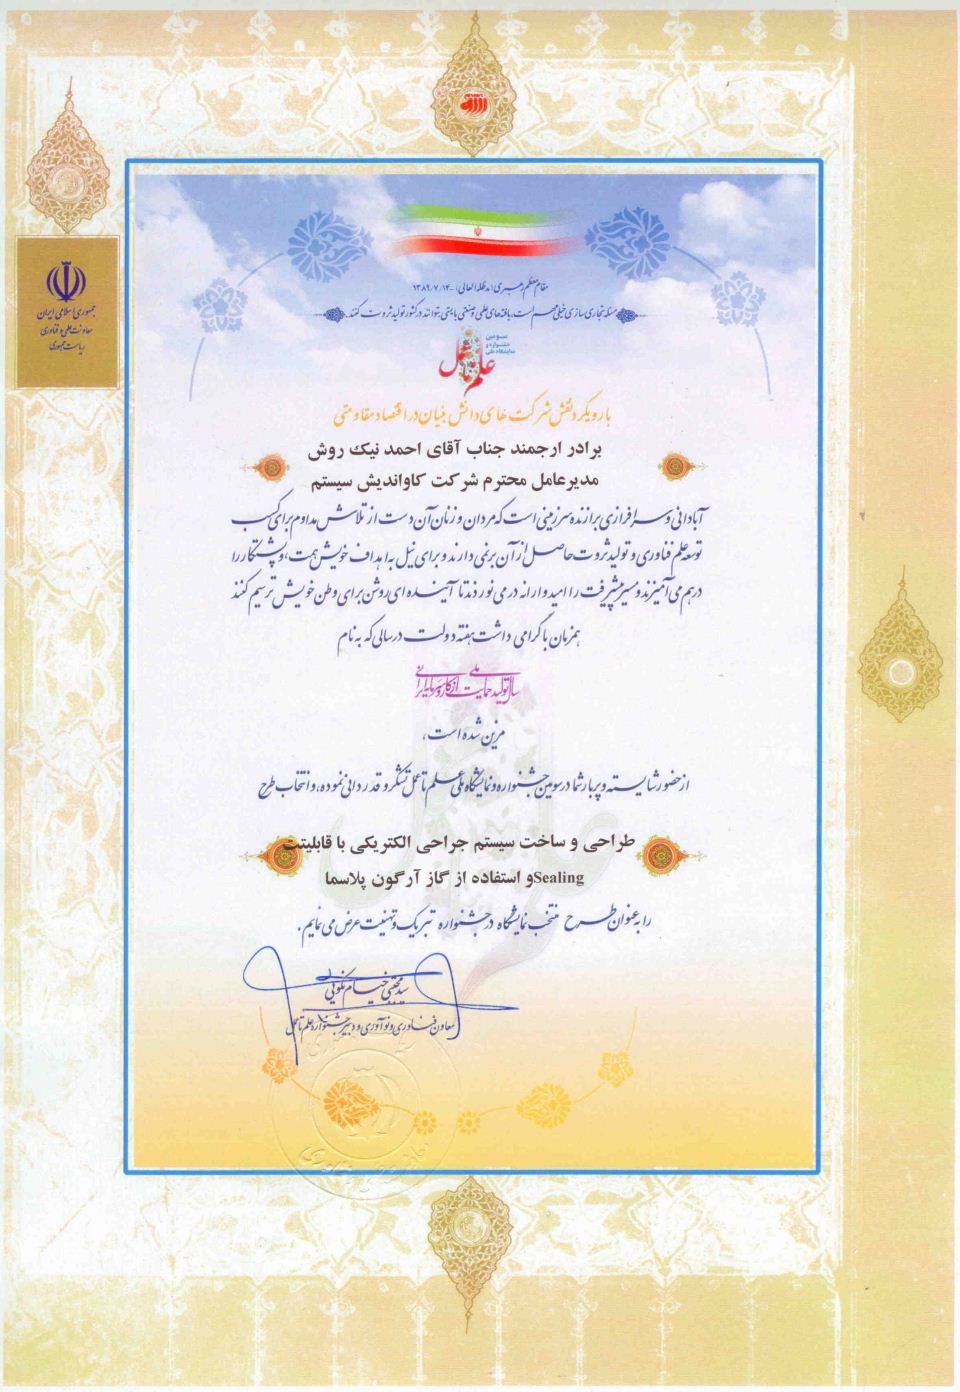 جمهوری اسلامی ایران
معاونت علمی و فناوری
ریاست جمهوری
مقام معظم رهبری (مدظله العالی) - ۱۳۸۹/۷/۱۴
مسئله تجاری سازی خیلی مهم است، یافته‌های علمی و صنعتی بایستی بتوانند در کشور تولید ثروت کنند.
سومین
جشنواره و
نمایشگاه ملی
علم تا عمل
با رویکرد نقش شرکت های دانش بنیان در اقتصاد مقاومتی
برادر ارجمند جناب آقای احمد نیک روش
مدیرعامل محترم شرکت کاواندیش سیستم
آبادانی و سرافرازی برازنده سرزمینی است که مردان و زنان آن دست از تلاش مداوم برای کسب
توسعه علم فناوری و تولید ثروت حاصل از آن برنمی دارند و برای نیل به اهداف خویش همت، و پشتکار را
در هم می آمیزند و مسیر پیشرفت را امیدوارانه در می نوردند تا آینده ای روشن برای وطن خویش ترسیم کنند
همزمان با گرامی داشت هفته دولت در سالی که به نام
سال تولید ملی حمایت از کار و سرمایه ایرانی
مزین شده است،
از حضور شایسته و پربار شما در سومین جشنواره و نمایشگاه ملی علم تا عمل تشکر و قدردانی نموده، و انتخاب طرح
طراحی و ساخت سیستم جراحی الکتریکی با قابلیت
Sealingو استفاده از گاز آرگون پلاسما
را به عنوان طرح منتخب نمایشگاه در جشنواره تبریک و تهنیت عرض می نمایم.
سید مجتبی خیام نکویی
معاون فناوری و نوآوری و دبیر جشنواره علم تا عمل